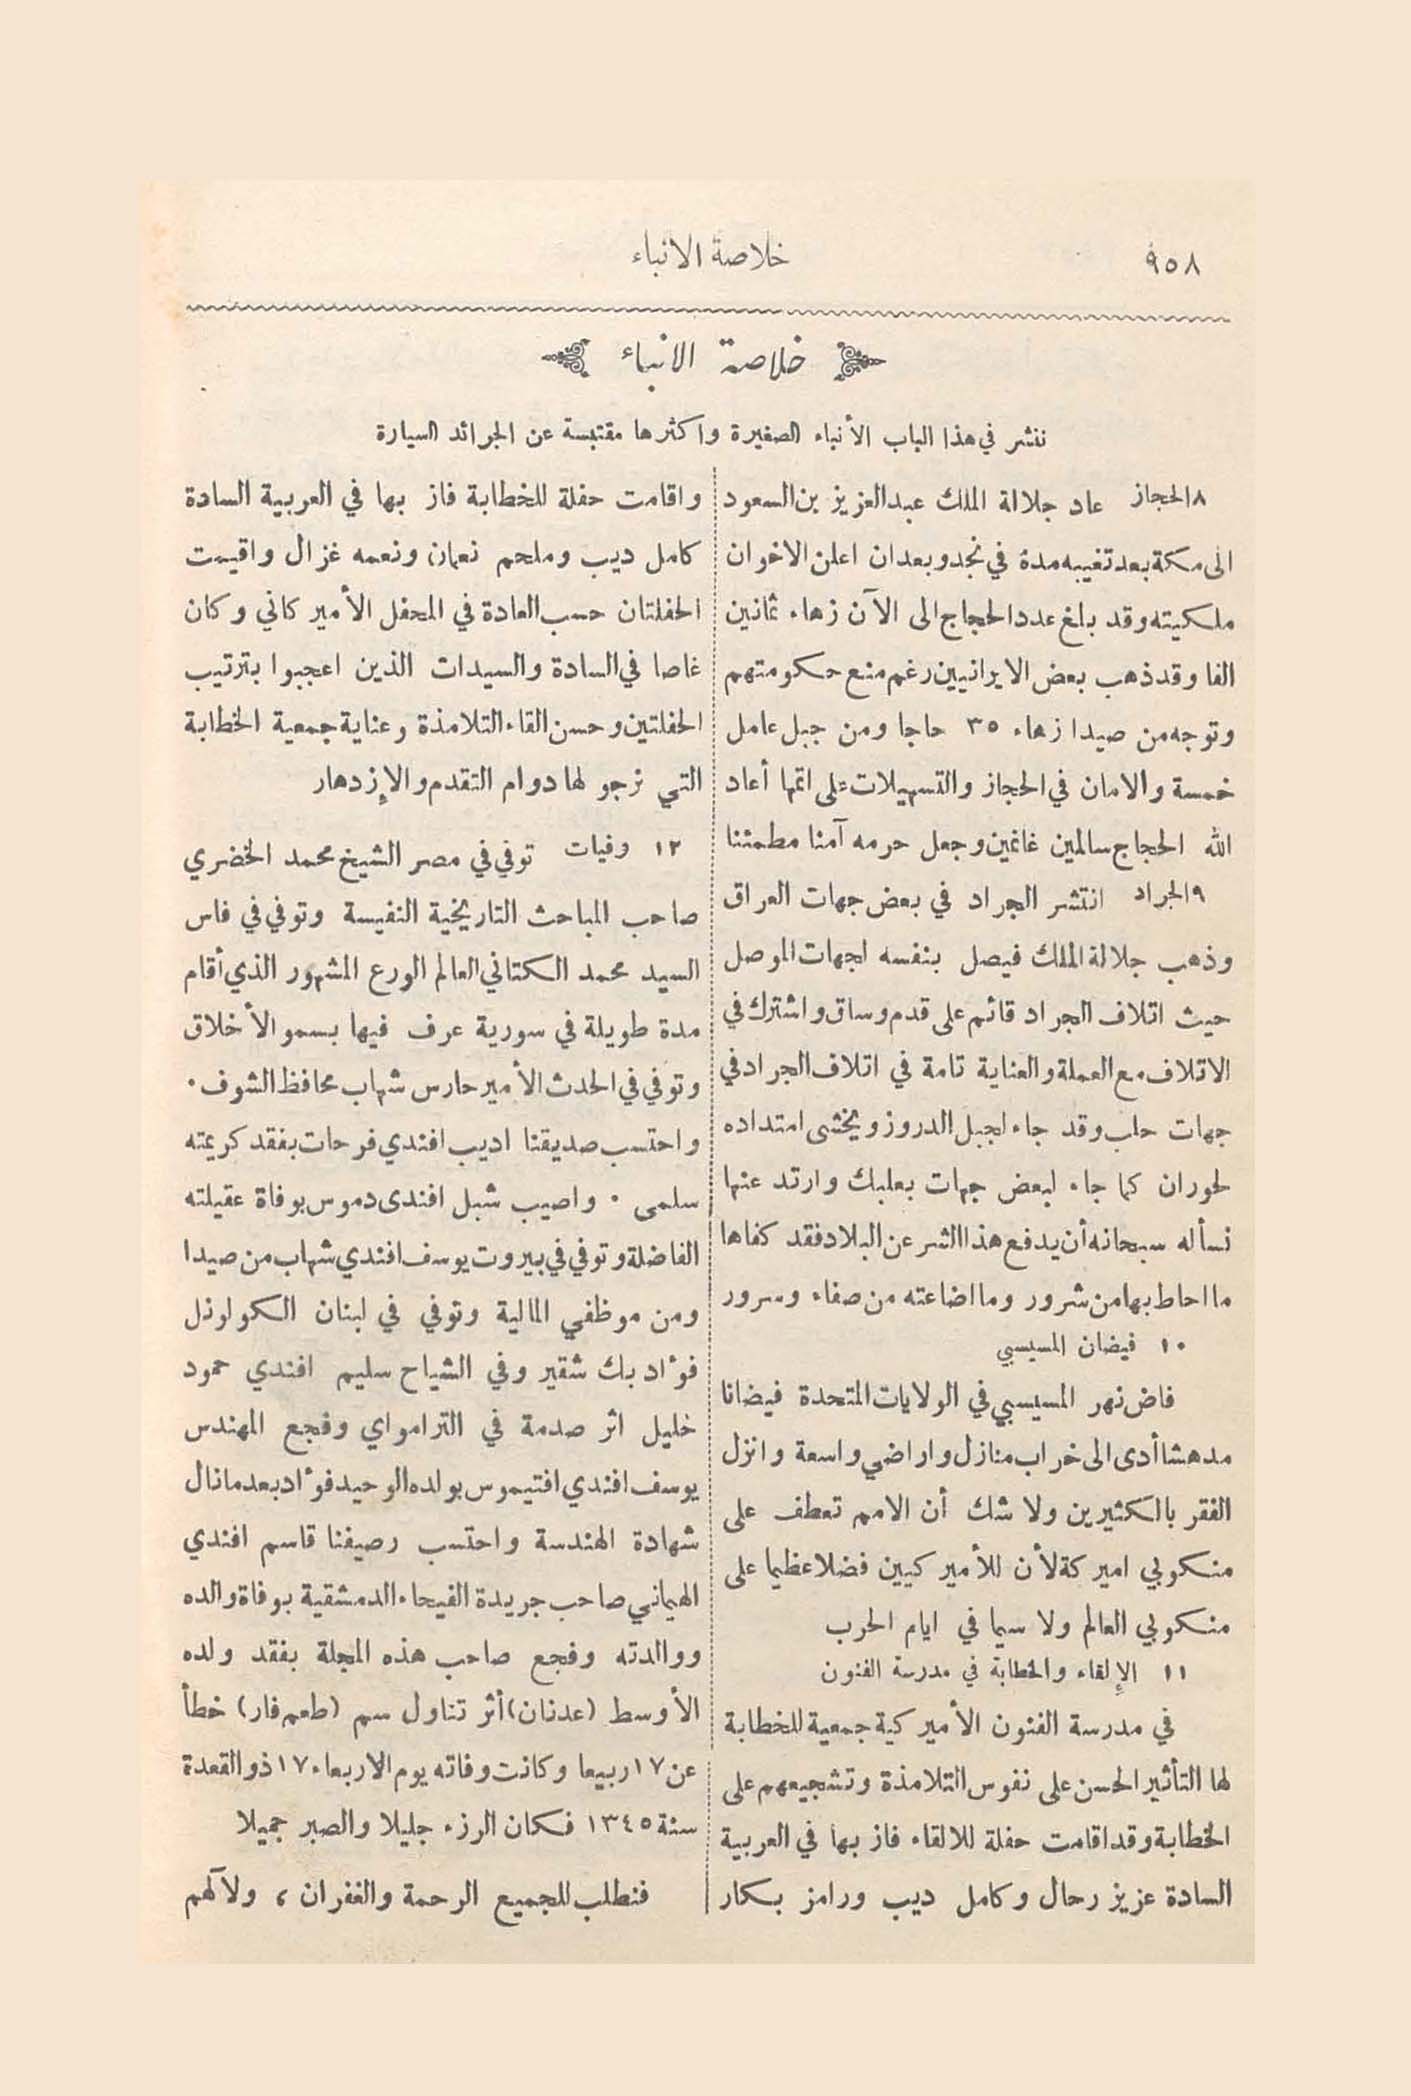 ٩٥٨
خلاصة الانباء
خلاصة الانباء
ننشر في هذا الباب الأنباء الصغيرة واكثرها مقتبسة عن الجرائد السيارة
٨ الحجاز عاد جلالة الملك عبدالعزيز بن السعود
الى مكة بعد تغيبه مدة في نجد وبعد ان اعلن الاخوان
ملكيته وقد بلغ عدد الحجاج الى الآن زهاء ثمانين
الفا وقد ذهب بعض الايرانيين رغم منع حكومتهم
وتوجه من صيدا زهاء ٣٥ حاجا ومن جبل عامل
خمسة والامان في الحجاز والتسهيلات على اتمها أعاد
الله الحجاج سالمين غانمين وجعل حرمه آمنا مطمئنا
٩ الجراد انتشر الجراد في بعض جهات العراق
وذهب جلالة الملك فيصل بنفسه لجهات الموصل
حيث اتلاف الجراد قائم على قدم وساق واشترك في
الاتلاف مع العملة والعناية تامة في اتلاف الجراد في
جهات حلب وقد جاء لجبل الدروز ويخشى امتداده
لحوران كما جاء لبعض جهات بعلبك وارتد عنها
نسأله سبحانه أن يدفع هذا الشر عن البلاد فقد كفاها
ما احاط بها من شرور وما اضاعته من صفاء وسرور
١٠ فيضان المسيسبي
فاض نهر المسيسبي في الولايات المتحدة فيضانا
مدهشا أدى الى خراب منازل واراضي واسعة وانزل
الفقر بالكثيرين ولا شك أن الامم تعطف على
منكوبي اميركة لأن للأميركيين فضلا عظيما على
منكوبي العالم ولا سيما في ايام الحرب
١١ الإلقاء والخطابة في مدرسة الفنون
في مدرسة الفنون الأميركية جمعية للخطابة
لها التأثير الحسن على نفوس التلامذة وتشجيعهم على
الخطابة وقد اقامت حفلة للالقاء فاز بها في العربية
السادة عزيز رحال وكامل ديب ورامز بكار
واقامت حفلة للخطابة فاز بها في العربية السادة
كامل ديب وملحم نعمان ونعمه غزال واقيمت
الحفلتان حسب العادة في المحفل الأميركاني وكان
غاصا في السادة والسيدات الذين اعجبوا بترتيب
الحفلتين وحسن القاء التلامذة وعناية جمعية الخطابة
التي نرجو لها دوام التقدم والإزدهار
١٢ وفيات توفي في مصر الشيخ محمد الخضري
صاحب المباحث التاريخية النفيسة وتوفي في فاس
السيد محمد الكتاني العالم الورع المشهور الذي أقام
مدة طويلة في سورية عرف فيها بسمو الأخلاق
وتوفي في الحدث الأمير حارس شهاب محافظ الشوف ٠
واحتسب صديقنا اديب افندي فرحات بفقد كريمته
سلمى ٠ واصيب شبل افندى دموس بوفاة عقيلته
الفاضلة وتوفي في بيروت يوسف افندي شهاب من صيدا
ومن موظفي المالية وتوفي في لبنان الكولونل
فؤاد بك شقير وفي الشياح سليم افندي حمود
خليل اثر صدمة في الترامواي وفجع المهندس
يوسف افندي افتيموس بولده الوحيد فؤاد بعد ما نال
شهادة الهندسة واحتسب رصيفنا قاسم افندي
الهيماني صاحب جريدة الفيحاء الدمشقية بوفاة والده
ووالدته وفجع صاحب هذه المجلة بفقد ولده
الأوسط (عدنان) أثر تناول سم (طعم فار) خطأ
عن ١٧ ربيعا وكانت وفاته يوم الاربعاء ١٧ ذو القعدة
سنة ١٣٤٥ فكان الرزء جليلا والصبر جميلا
فنطلب للجميع الرحمة والغفران ، ولآلهم